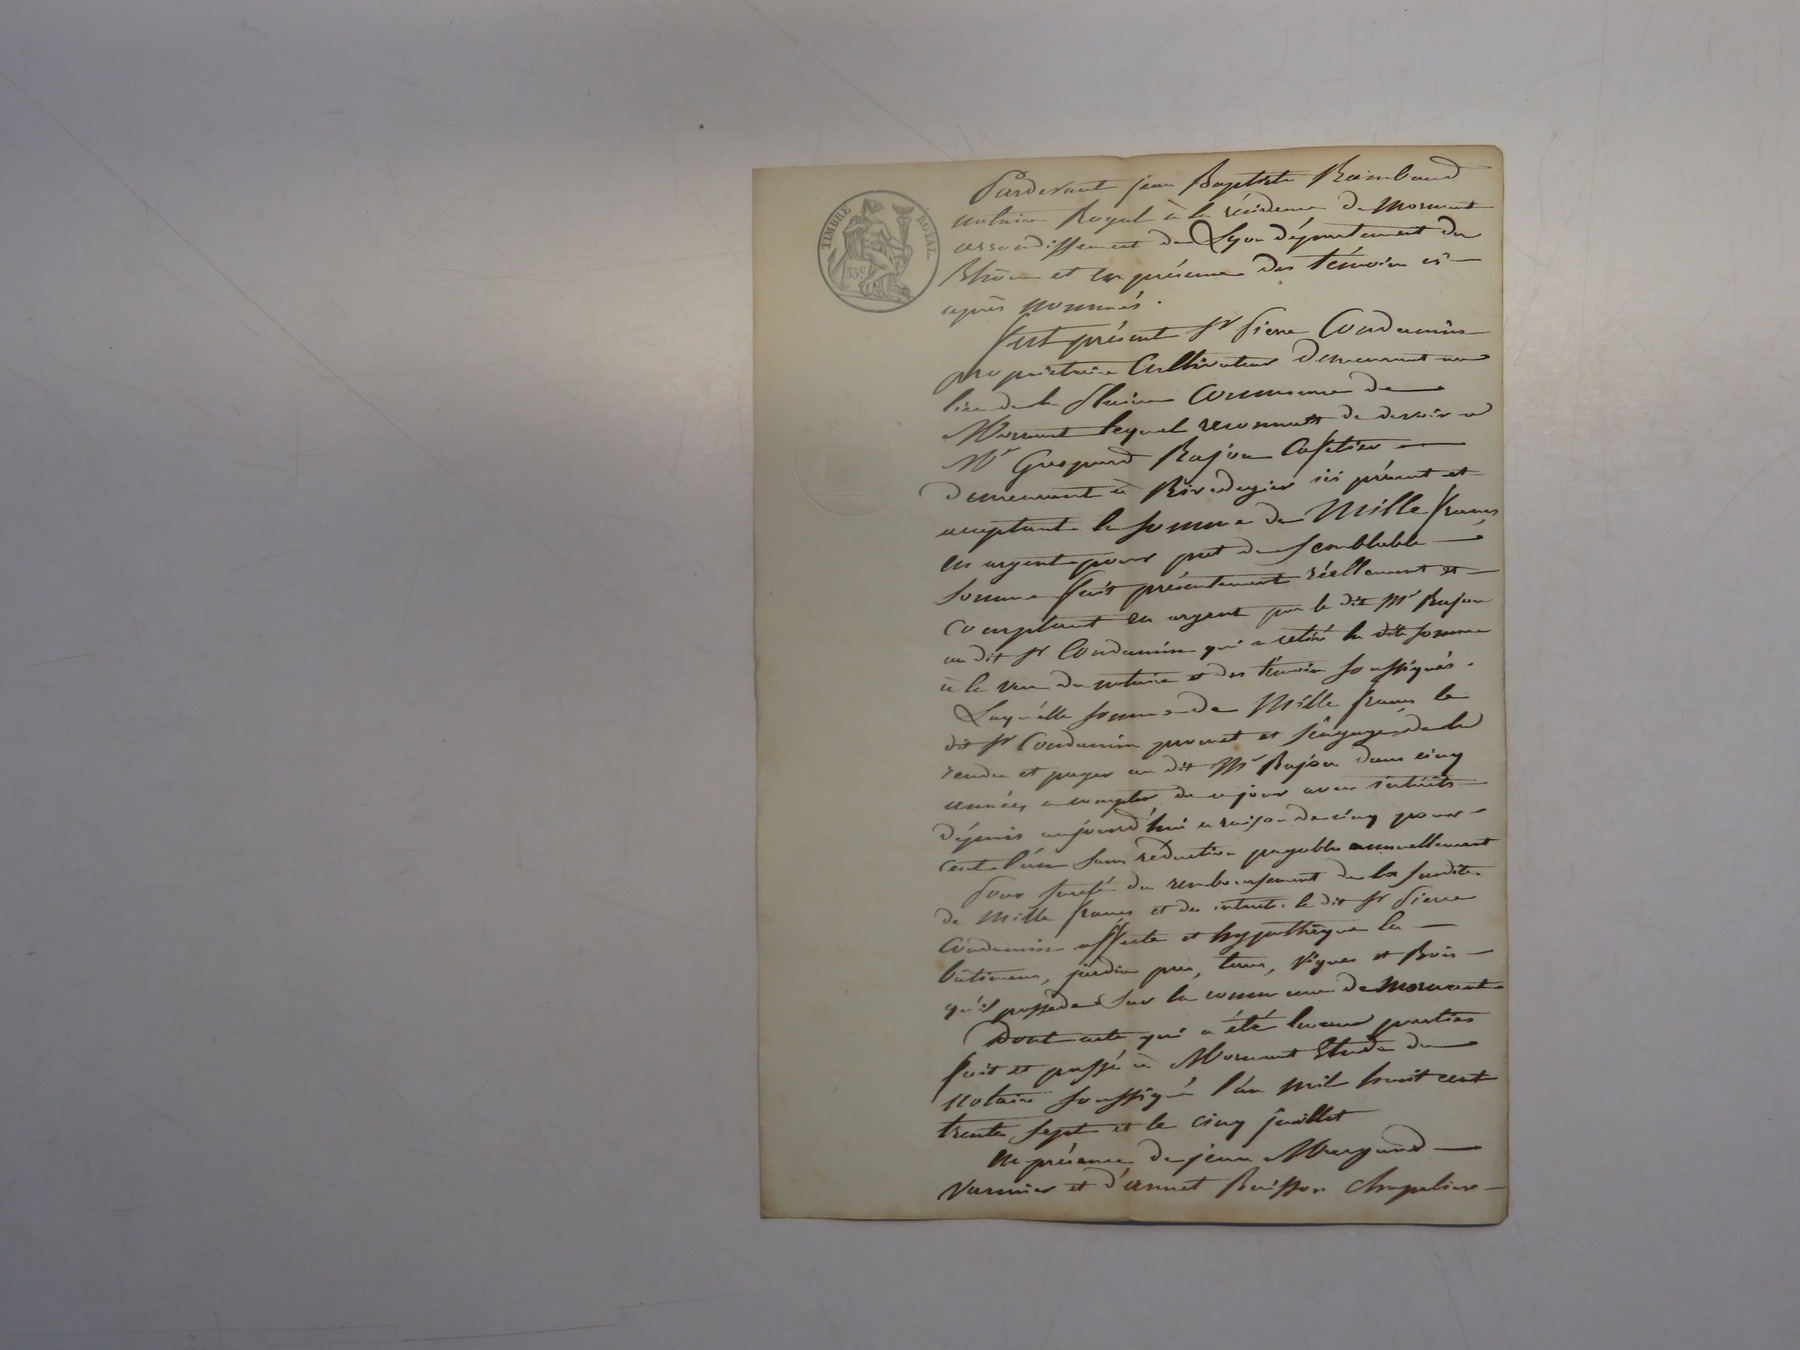 TIMBRE ROYAL.
35c
Pardevant jean Baptiste Raimbaud
notaire Royal à la résidence de Mornant
arrondissement de Lyon département du
Rhône et en présence des témoins ci-
après nommés.
fut présent Sr Pierre Condamin
propriétaire Cultivateur demeurant au
lieu de la Plaine Commune de
Mornant lequel reconnait de devoir a
Mr Gaspard Rajon Cafetier
demeurant à Rivedegier ici présent et
acceptant la somme de Mille francs
en argent pour pret de semblable
somme fait présentement réellement et
comptant en argent par le dit Mr Rajon
au dit Sr Condamin qui a retiré la dite somme
à la vue du notaire et des témoins soussignés.
Laquelle somme de Mille francs le
dit Sr Condamin promet et s'engage de la
rendre et payer au dit Mr Rajon dans cinq
années a compter de ce jour avec intérêts
dépuis aujourd'hui a raison de cinq pour
cent l'an sans réduction payable annuellement
Pour sureté du remboursement de la susdite
de Mille francs et des intérêts le dit Sr Pierre
Condamin affecte et hypothèque les
bâtimens, jardin pré, terres, vignes et Bois
qu'il possède sur la commune de Mornant
Dont acte qui a été lu aux parties
fait et passé à Mornant Etude du
notaire soussigné l'an mil huit cent
trente sept et le cinq juillet
en présence de jean Margand
vannier et d'annet Buisson chapelier